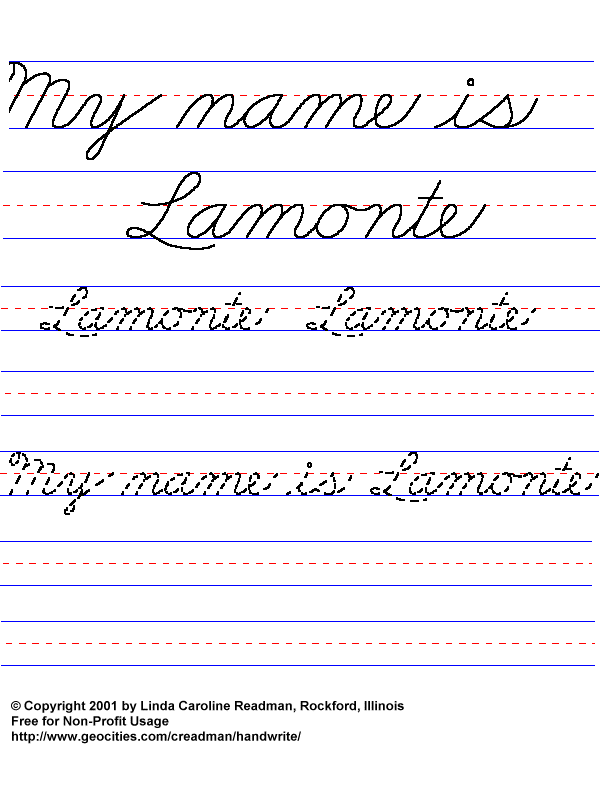 My name is
Lamonte
Lamonte Lamonte
My name is Lamonte
© Copyright 2001 by Linda Caroline Readman, Rockford, Illinois
Free for Non-Profit Usage
http://www.geocities.com/creadman/handwrite/